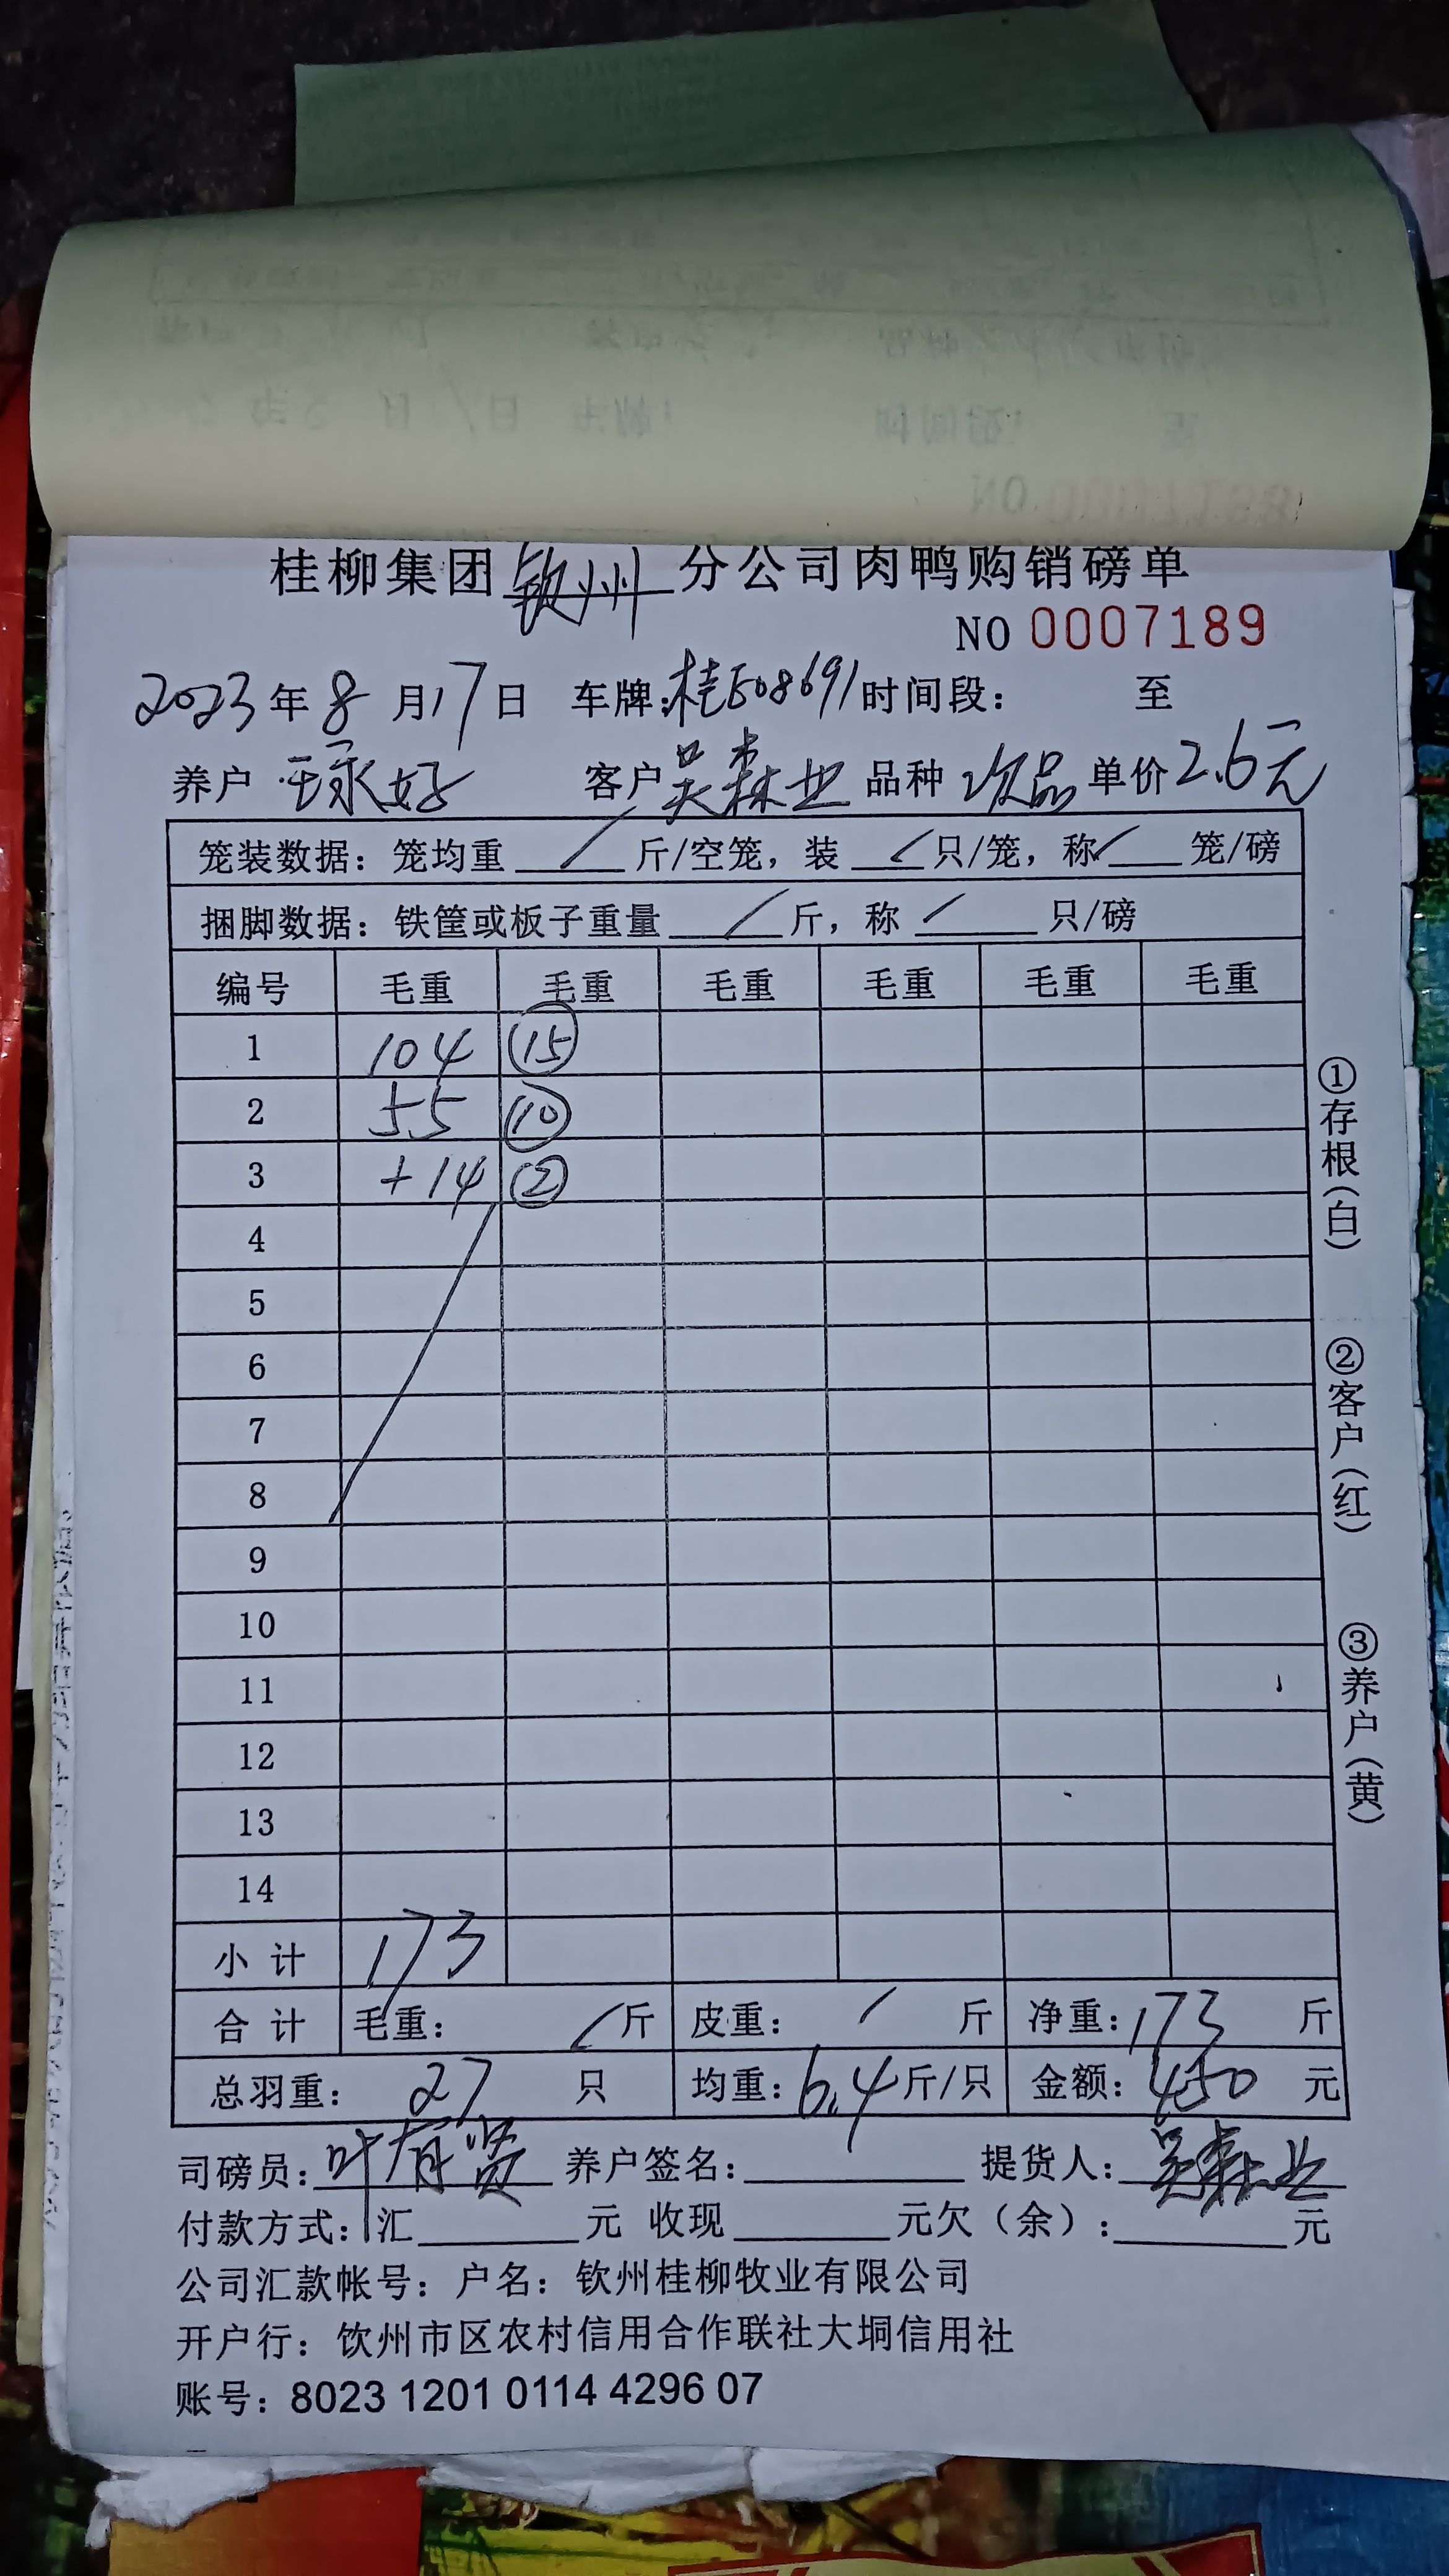 桂柳集团 钦州 分公司肉鸭购销磅单
NO 0007189
2023年8月17日 车牌:桂E08691 时间段: 至
养户 好 客户 吴森业 品种 次品 单价 2.6元
笼装数据: 笼均重 / 斤/空笼, 装 / 只/笼, 称 / 笼/磅
捆脚数据: 铁筐或板子重量 / 斤, 称 / 只/磅
编号 毛重 毛重 毛重 毛重 毛重 毛重
1 104 ⑮
2 55 ⑩
3 +14 ②
4
5
6
7
8
9
10
11
12
13
14
小计 173
合计 毛重: / 斤 皮重: / 斤 净重: 173 斤
总羽重: 27 只 均重: 6.4 斤/只 金额: 450 元
司磅员: 叶有贤 养户签名: 提货人: 吴森业
付款方式: 汇 元 收现 元欠(余): 元
公司汇款帐号: 户名: 钦州桂柳牧业有限公司
开户行: 钦州市区农村信用合作联社大垌信用社
账号: 8023 1201 0114 4296 07
①存根(白)
②客户(红)
③养户(黄)